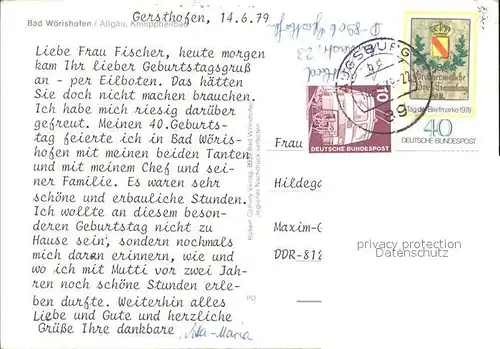 Bad Wörishofen / Allgäu, Kneippheilbad
Gersthofen, 14.6.79
Liebe Frau Fischer, heute morgen
kam Ihr lieber Geburtstagsgruß
an - per Eilboten. Das hätten
Sie doch nicht machen brauchen.
Ich habe mich riesig darüber
gefreut. Meinen 40.Geburts-
tag feierte ich in Bad Wöris-
hofen mit meinen beiden Tanten
und mit meinem Chef und sei-
ner Familie. Es waren sehr
schöne und erbauliche Stunden.
Ich wollte an diesem beson-
deren Geburtstag nicht zu
Hause sein, sondern nochmals
mich daran erinnern, wie und
wo ich mit Mutti vor zwei Jah-
ren noch schöne Stunden erle-
ben durfte. Weiterhin alles
Liebe und Gute und herzliche
Grüße Ihre dankbare
-Maria
Verlag, 8939 Bad Wörishofen
Jeglicher Nachdruck verboten
PO
AUGSBURG
10
DEUTSCHE BUNDESPOST
Tag der Briefmarke 1978
40
DEUTSCHE BUNDESPOST
Frau
Hildega
Maxim-G
DDR-812
privacy protection
Datenschutz